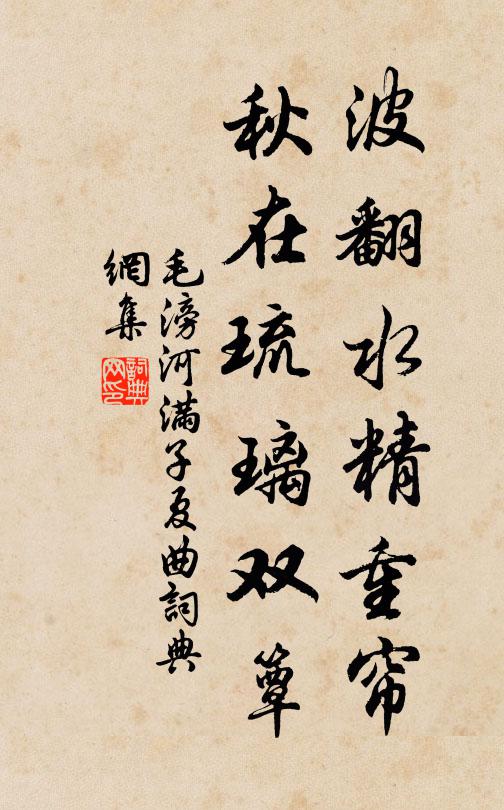 波翻水精重帘
秋在琉璃双簟
毛滂河满子夏曲词典
網集
詞典
网印